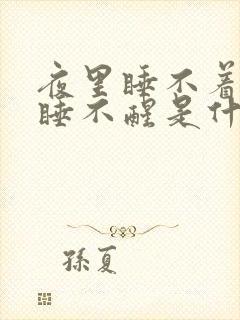 夜里睡不着
睡不醒是什
孫夏